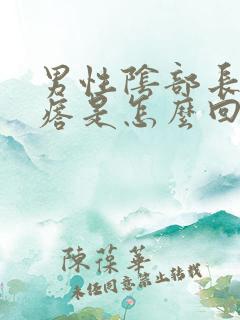 男性陰部長
痞是怎麼回
陳葆華
未經同意禁止轉載